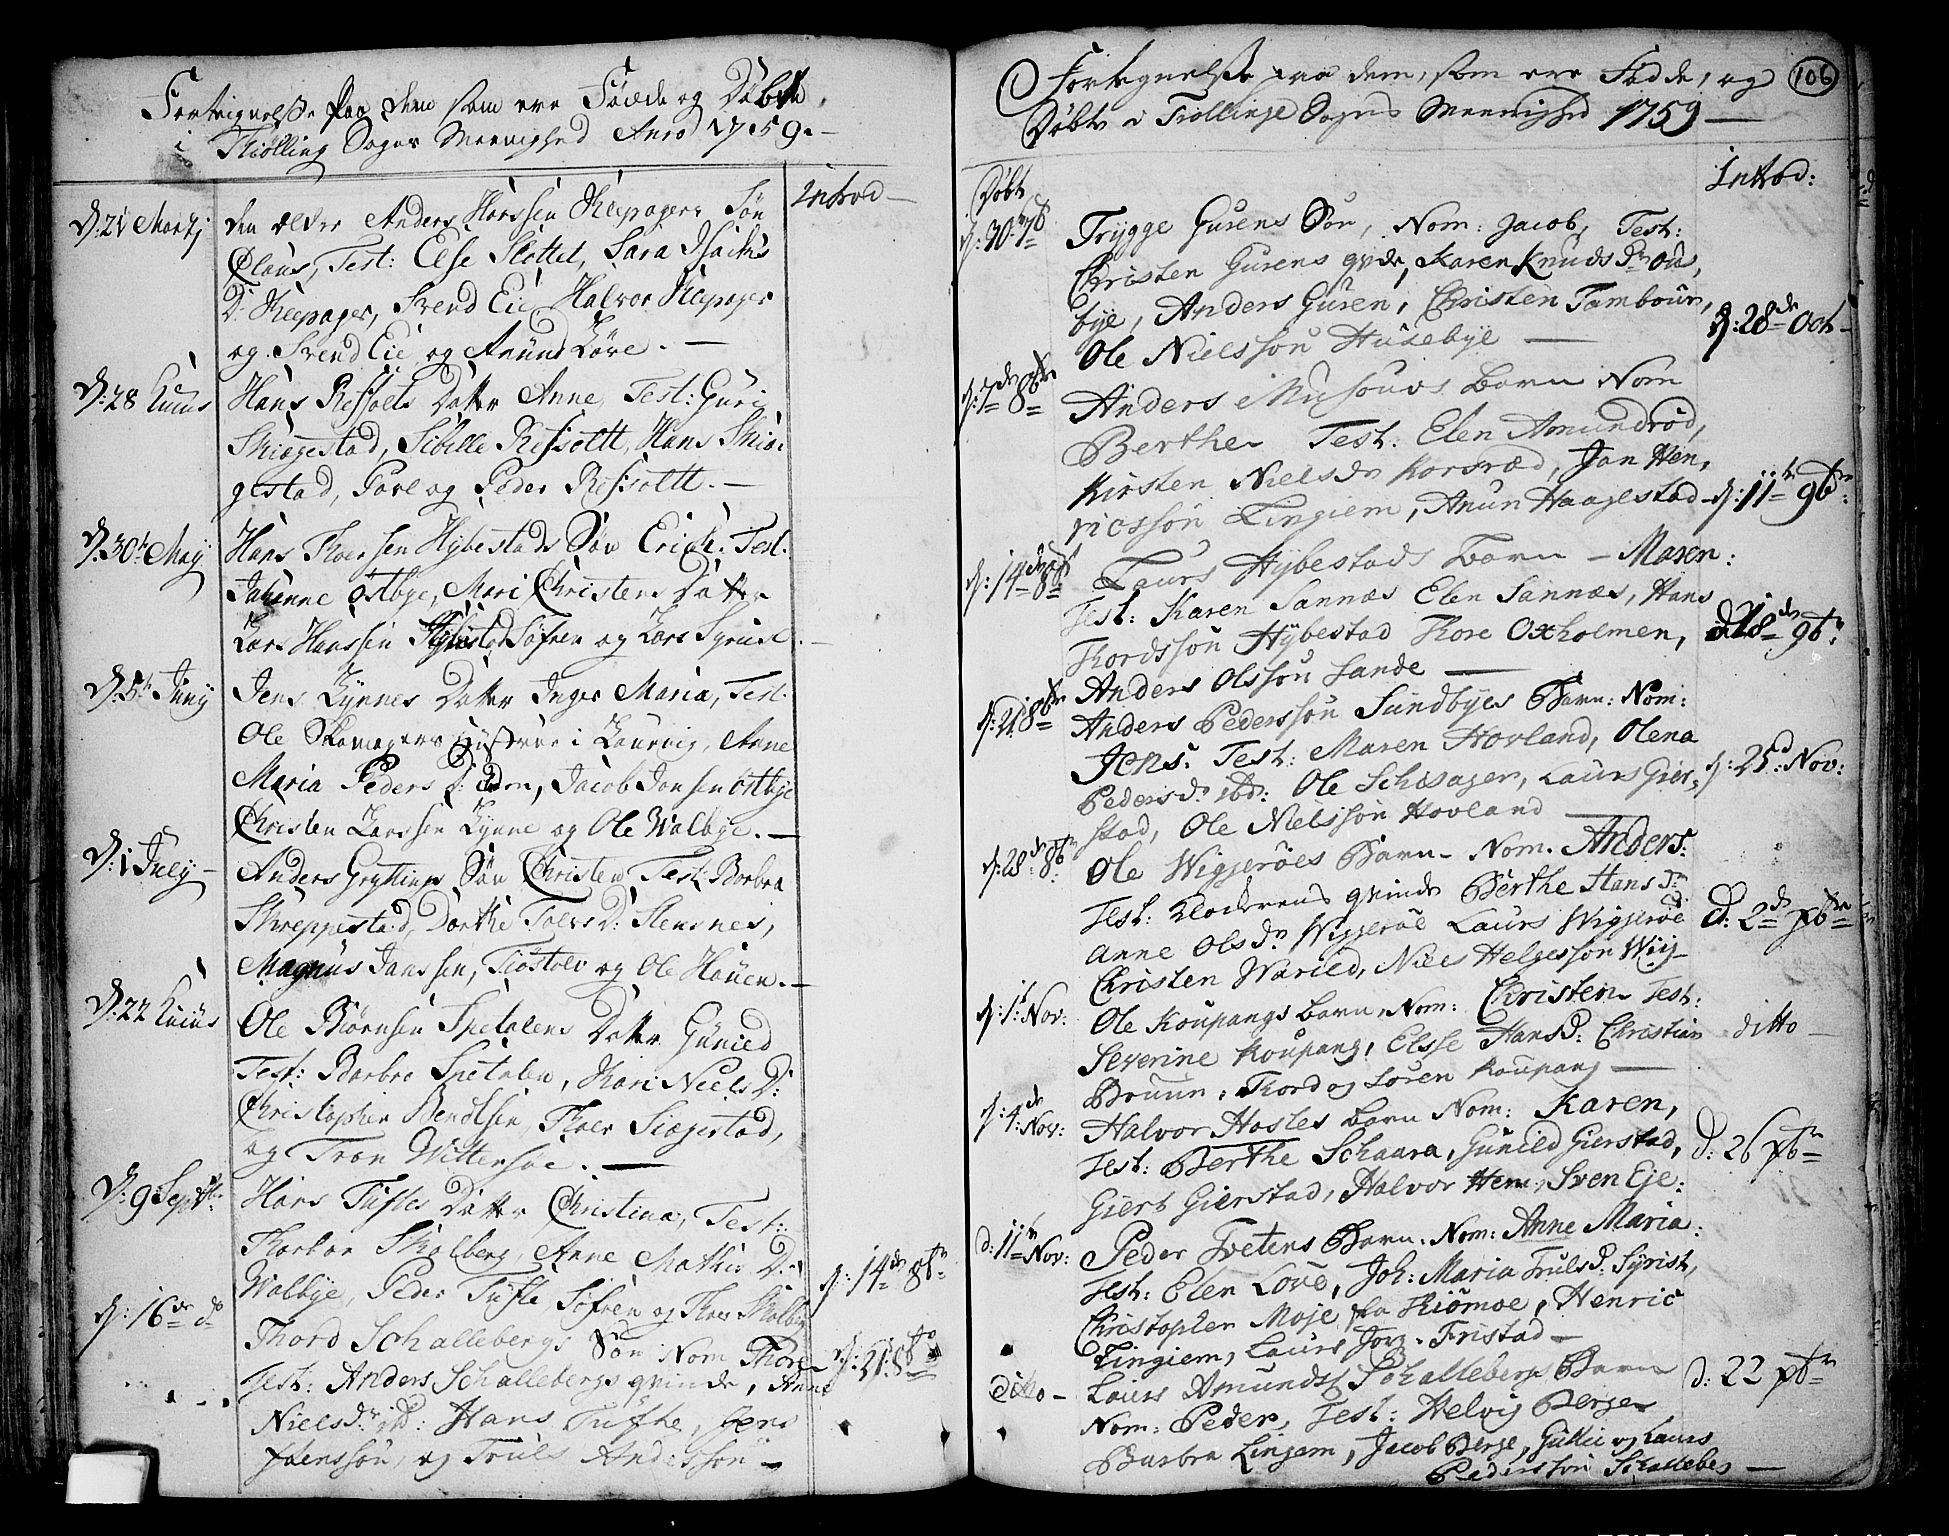 Forteignelse Paa dem som ere Födde og Döbte
i Thiölling Sogns Meenighed Anno 1759.
Introd
D: 21 Martj
den ældre Anders Hanssen Klepagers Sön
Claus, Test: Else Slottet, Sara Isachs
D: Klepager, Svend Eie, Halvor Klepager
og Svend Eie og Anund Löve.
D: 28 Ejusd
Hans Refsolts Datter Anne, Test: Guri
Skiægestad, Sibille Refsoltt, Hans Skiæ
gestad, Povel og Peder Refsoltt.
D: 30te Maij
Hans Thorssen Hybestads Sön Erich. Test.
Johanne Östbye, Mari Christens Datter
Lars Hanssen Hybestad, Söfren og Lars Syrist.
D: 5te Junij
Jens Lynnes Datter Inger Maria, Test.
Ole Skomagers Hustrue i Laurvig, Anne
Maria Peders D: ibdem, Jacob Jonsen Östbye
Christen Larssen Lynne og Ole Walbye.
D: 1 July
Anders Gryttings Sön Christen Test: Barbra
Skreppestad, Dorthe Toers D: Stensnes,
Magnus Janssen, Tiöstolv og Ole Hauen.
D: 22 Ejusd
Ole Biörnsen Spetalens Datter Gunild
Test: Barbra Spetalen, Kari Niels D:
Christopher Bendtsen, Thoer Siægestad,
og Tron Wittersöe.
D: 9 Septbr:
Hans Tuftes Datter Christina, Test:
Thorbor Skalberg, Anne Mathis D:
Walbye, Peder Tufte Söfren og Thoer Skalberg
D: 14de 8br
D: 16de do
Thord Schallebergs Sön Nom Thore
D: 21: 8br
Test: Anders Schallebergs qvinde, Anne
Niels Dr ibd: Hans Tufte, Jens
Joensson, og Truls Anderssön
106
Fortegnelse paa dem, som ere Födde, og
Döbte i Tiöllinge Sogns Meenighed 1759
Döbt
Introd:
D: 30: 7br
Trygge Gurens Sön, Nom: Jacob, Test:
Christen Gurens qvde, Karen Knuds Dr Ous,
bye, Anders Guren, Christen Tambour,
D: 28de Oct
Ole Nielssön Husebye
D: 7de 8br
Anders Musouvs Barn Nom
Berthe Test: Elen Amundröd,
Kirsten Niels Dr Korsræd, Jan Hen,
ricssön Lingiem, Anun Haagestad
D: 11te 9br:
D: 14de 8br
Laurs Hybestads Barn Maren:
Test: Karen Sannæs Elen Sannæs, Hans
Thordssön Hybestad Thore Oxholmen,
D: 18de 9br:
Anders Olssön Sande
D: 21 8br
Anders Pederssön Sundbyes Barn: Nom:
Jens. Test: Maren Hovland, Olena
D: 25d Nov:
Peders Dr ibdr: Ole Schisager, Laurs Gier,
stad, Ole Nielssön Hovland
D: 28de 8br
Ole Wigjeröes Barn Nom. Anders:
Test: Klokerens qvinde Berthe Hans Dr
Anne Ols Dr Wigjeröe Laurs Wigjeröe
D: 2d Xbr
Christen Warild, Niels Helgessön Wiig
D: 1te Nov:
Ole Koupangs Barn, Nom: Christen Test:
Severine Koupang, Elsse Hans D: Christian
ditto
Bruun, Thord og Sören Koupang
D: 4de Nov:
Halvor Hostes Barn Nom: Karen,
Test: Berthe Schaara, Gunild Gierstad,
D: 26 Xbr
Giert Gierstad, Halvor Hem, Sven Eje:
D: 11te Nov:
Peder Tvetens Barn: Nom: Anne Maria:
Test: Elen Löve, Joh: Maria Truls D: Syrist,
Christopher Moje fra Thiömöe, Henric
Lingiem, Laurs Jorg. Fristad
ditto
Laurs Amunds. Schallebergs Barn
D: 22 Xbr
Nom: Peder, Test: Helvig Berge
Barbra Lingem, Jacob Berge, Gullic og Laurs
Pederssön Schalleberg